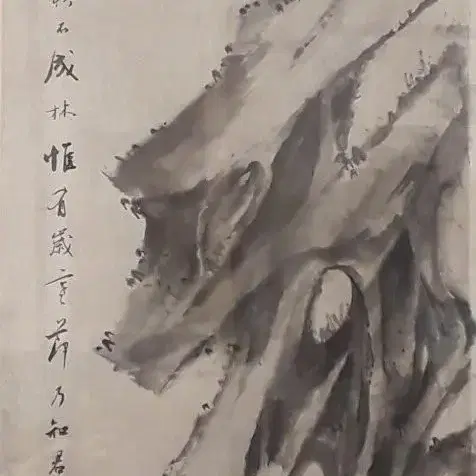 石成林惟有歲寒節乃知君